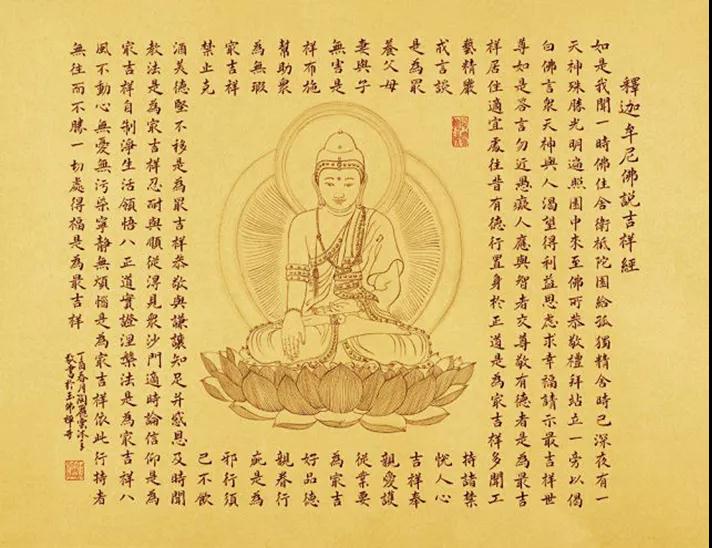 釋迦牟尼佛說吉祥經
如是我聞一時佛住舍衛祗陀園給孤獨精舍時已深夜有一
天神殊勝光明遍照園中來至佛所恭敬禮拜站立一旁以偈
白佛言眾天神與人渴望得利益思慮求幸福請示最吉祥世
尊如是答言勿近愚癡人應與智者交尊敬有德者是為最吉
祥居住適宜處往昔有德行置身於正道是為最吉祥多聞工
藝精嚴持諸禁
戒言談悅人心
是為最吉祥奉
養父母親愛護
妻與子從業要
無害是為最吉
祥布施好品德
幫助眾親眷行
為無瑕疵是為
最吉祥邪行須
禁止克己不飲
酒美德堅不移是為最吉祥恭敬與謙讓知足并感恩及時聞
教法是為最吉祥忍耐與順從得見眾沙門適時論信仰是為
最吉祥自制淨生活領悟八正道實證涅槃法是為最吉祥八
風不動心無憂無污染寧靜無煩惱是為最吉祥依此行持者
無往而不勝一切處得福是為最吉祥
丁酉春月沐手
敬書於玉佛禪寺